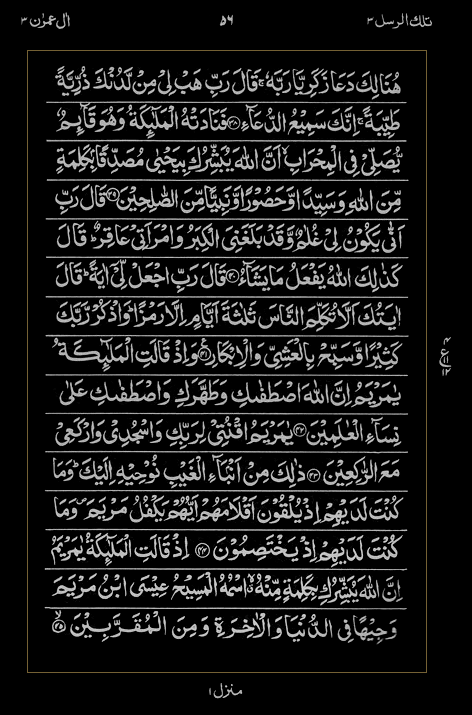 تلك الرسل ٣ ٥٦ ال عمرٰن ٣
هُنَالِكَ دَعَا زَكَرِيَّا رَبَّهٗ ۚ قَالَ رَبِّ هَبْ لِیْ مِنْ لَّدُنْكَ ذُرِّیَّةً
طَیِّبَةً ۚ اِنَّكَ سَمِیْعُ الدُّعَآءِ ﴿٣٨﴾ فَنَادَتْهُ الْمَلٰٓىِٕكَةُ وَهُوَ قَآىِٕمٌ
یُّصَلِّیْ فِی الْمِحْرَابِ ۙ اَنَّ اللّٰهَ یُبَشِّرُكَ بِیَحْیٰى مُصَدِّقًۢا بِكَلِمَةٍ
مِّنَ اللّٰهِ وَسَیِّدًا وَّحَصُوْرًا وَّنَبِیًّا مِّنَ الصّٰلِحِیْنَ ﴿٣٩﴾ قَالَ رَبِّ
اَنّٰى یَكُوْنُ لِیْ غُلٰمٌ وَّقَدْ بَلَغَنِیَ الْكِبَرُ وَامْرَاَتِیْ عَاقِرٌ ؕ قَالَ
كَذٰلِكَ اللّٰهُ یَفْعَلُ مَا یَشَآءُ ﴿٤٠﴾ قَالَ رَبِّ اجْعَلْ لِّیْۤ اٰیَةً ؕ قَالَ
اٰیَتُكَ اَلَّا تُكَلِّمَ النَّاسَ ثَلٰثَةَ اَیَّامٍ اِلَّا رَمْزًا ؕ وَاذْكُرْ رَّبَّكَ
كَثِیْرًا وَّسَبِّحْ بِالْعَشِیِّ وَالْاِبْكَارِ ﴿٤١﴾ وَاِذْ قَالَتِ الْمَلٰٓىِٕكَةُ
یٰمَرْیَمُ اِنَّ اللّٰهَ اصْطَفٰىكِ وَطَهَّرَكِ وَاصْطَفٰىكِ عَلٰى
نِسَآءِ الْعٰلَمِیْنَ ﴿٤٢﴾ یٰمَرْیَمُ اقْنُتِیْ لِرَبِّكِ وَاسْجُدِیْ وَارْكَعِیْ
مَعَ الرّٰكِعِیْنَ ﴿٤٣﴾ ذٰلِكَ مِنْ اَنْۢبَآءِ الْغَیْبِ نُوْحِیْهِ اِلَیْكَ ؕ وَمَا
كُنْتَ لَدَیْهِمْ اِذْ یُلْقُوْنَ اَقْلَامَهُمْ اَیُّهُمْ یَكْفُلُ مَرْیَمَ ۪ وَمَا
كُنْتَ لَدَیْهِمْ اِذْ یَخْتَصِمُوْنَ ﴿٤٤﴾ اِذْ قَالَتِ الْمَلٰٓىِٕكَةُ یٰمَرْیَمُ
اِنَّ اللّٰهَ یُبَشِّرُكِ بِكَلِمَةٍ مِّنْهُ ۖۗ اسْمُهُ الْمَسِیْحُ عِیْسَى ابْنُ مَرْیَمَ
وَجِیْهًا فِی الدُّنْیَا وَالْاٰخِرَةِ وَمِنَ الْمُقَرَّبِیْنَ ﴿٤٥﴾ۙ
٤ ع ١١ ١٢
منزل ١